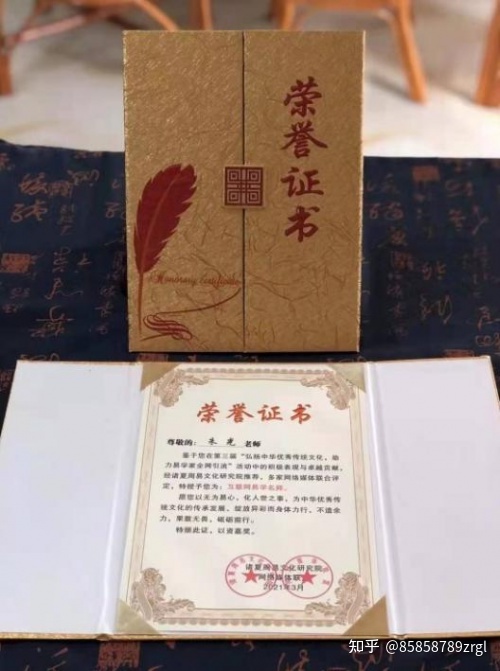 荣誉证书
Honorary Certificate
荣誉证书
尊敬的：朱光 老师
鉴于您在第三届“弘扬中华优秀传统文化，助
力易学家全网引流”活动中的积极表现与卓越贡献，
经诸夏周易文化研究院推荐，多家网络媒体联合评
定，特授予您为：互联网易学名师。
愿您以无为易心，化人世之事，为中华优秀传
统文化的传承发展，绽放异彩而身体力行，不遗余
力，果敢无畏，砥砺前行。
特颁此证，以资嘉奖。
诸夏周易文化研究院
网络媒体联
2021年3月
知乎 @85858789zrgl